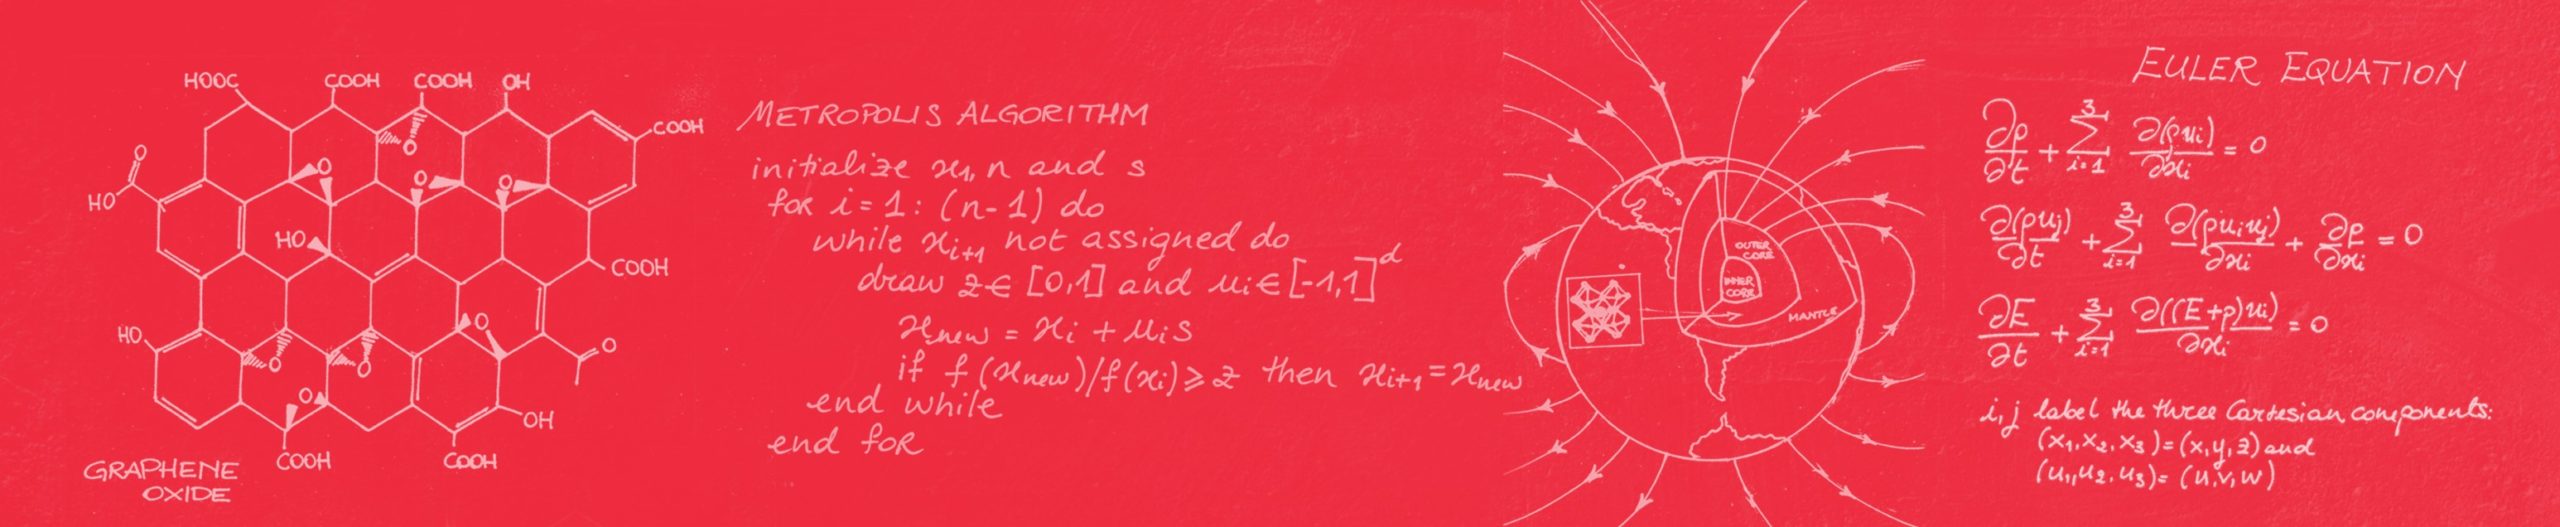 HOOC COOH COOH OH
COOH
O
O
O
HO
O O
HO
COOH
HO
O
O
O O
O
OH
COOH COOH
GRAPHENE
OXIDE
METROPOLIS ALGORITHM
initialize x₁, n and s
for i = 1 : (n-1) do
while xᵢ₊₁ not assigned do
draw z ∈ [0,1] and uᵢ ∈ [-1,1]ᵈ
xnew = xᵢ + uᵢs
if f(xnew)/f(xᵢ) ⩾ z then xᵢ₊₁ = xnew
end while
end for
OUTER
CORE
INNER
CORE
MANTLE
EULER EQUATION
∂ρ/∂t + ∑³ᵢ₌₁ ∂(ρuᵢ)/∂xᵢ = 0
∂(ρuⱼ)/∂t + ∑³ᵢ₌₁ ∂(ρuᵢuⱼ)/∂xᵢ + ∂p/∂xᵢ = 0
∂E/∂t + ∑³ᵢ₌₁ ∂((E+p)uᵢ)/∂xᵢ = 0
i, j label the three Cartesian components:
(x₁, x₂, x₃) = (x, y, z) and
(u₁, u₂, u₃) = (u, v, w)